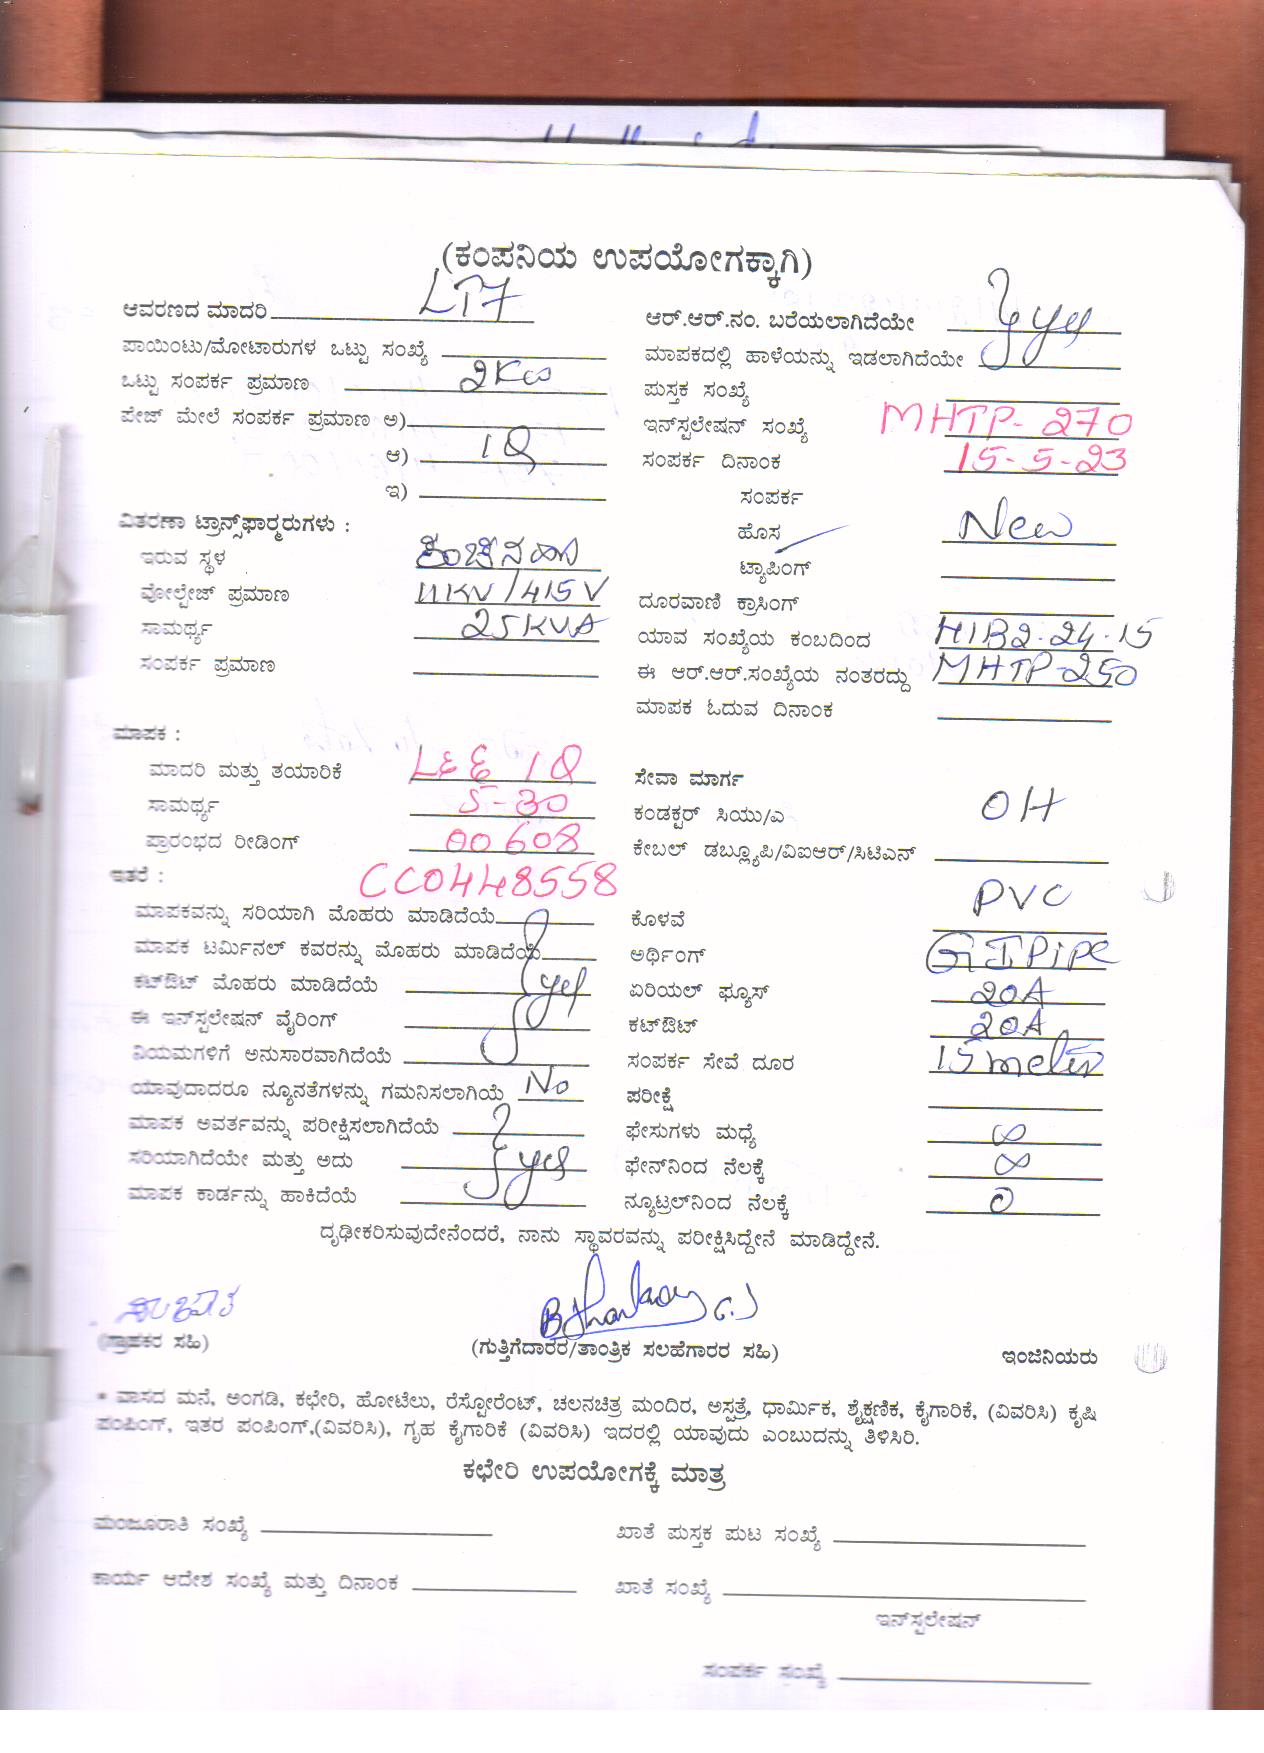 (ಕಂಪನಿಯ ಉಪಯೋಗಕ್ಕಾಗಿ)
ಆವರಣದ ಮಾದರಿ LT7
ಪಾಯಿಂಟು/ಮೋಟಾರುಗಳ ಒಟ್ಟು ಸಂಖ್ಯೆ
ಒಟ್ಟು ಸಂಪರ್ಕ ಪ್ರಮಾಣ 2Kw
ಪೇಜ್ ಮೇಲೆ ಸಂಪರ್ಕ ಪ್ರಮಾಣ ಅ)
ಆ) 1Q
ಇ)
ವಿತರಣಾ ಟ್ರಾನ್ಸ್‌ಫಾರ್‍ಮರುಗಳು :
ಇರುವ ಸ್ಥಳ
ವೋಲ್ಟೇಜ್ ಪ್ರಮಾಣ 11KV/415V
ಸಾಮರ್ಥ್ಯ 25KVA
ಸಂಪರ್ಕ ಪ್ರಮಾಣ
ಆರ್.ಆರ್.ನಂ. ಬರೆಯಲಾಗಿದೆಯೇ
ಮಾಪಕದಲ್ಲಿ ಹಾಳೆಯನ್ನು ಇಡಲಾಗಿದೆಯೇ } yes
ಪುಸ್ತಕ ಸಂಖ್ಯೆ
ಇನ್‌ಸ್ಟಲೇಷನ್ ಸಂಖ್ಯೆ MHTP-270
ಸಂಪರ್ಕ ದಿನಾಂಕ 15-5-23
ಸಂಪರ್ಕ
ಹೊಸ New
ಟ್ಯಾಪಿಂಗ್
ದೂರವಾಣಿ ಕ್ರಾಸಿಂಗ್
ಯಾವ ಸಂಖ್ಯೆಯ ಕಂಬದಿಂದ H1B2-24-15
ಈ ಆರ್.ಆರ್.ಸಂಖ್ಯೆಯ ನಂತರದ್ದು MHTP-250
ಮಾಪಕ ಓದುವ ದಿನಾಂಕ
ಮಾಪಕ :
ಮಾದರಿ ಮತ್ತು ತಯಾರಿಕೆ L&G 1Q
ಸಾಮರ್ಥ್ಯ 5-30
ಪ್ರಾರಂಭದ ರೀಡಿಂಗ್ 00608
ಇತರೆ : CC0448558
ಮಾಪಕವನ್ನು ಸರಿಯಾಗಿ ಮೊಹರು ಮಾಡಿದೆಯೆ
ಮಾಪಕ ಟರ್ಮಿನಲ್ ಕವರನ್ನು ಮೊಹರು ಮಾಡಿದೆಯೆ
ಕಟ್‌ಔಟ್ ಮೊಹರು ಮಾಡಿದೆಯೆ } yes
ಈ ಇನ್‌ಸ್ಟಲೇಷನ್ ವೈರಿಂಗ್
ನಿಯಮಗಳಿಗೆ ಅನುಸಾರವಾಗಿದೆಯೆ
ಯಾವುದಾದರೂ ನ್ಯೂನತೆಗಳನ್ನು ಗಮನಿಸಲಾಗಿಯೆ No
ಮಾಪಕ ಅವರ್ತವನ್ನು ಪರೀಕ್ಷಿಸಲಾಗಿದೆಯೆ
ಸರಿಯಾಗಿದೆಯೇ ಮತ್ತು ಅದು } yes
ಮಾಪಕ ಕಾರ್ಡನ್ನು ಹಾಕಿದೆಯೆ
ಸೇವಾ ಮಾರ್ಗ
ಕಂಡಕ್ಟರ್ ಸಿಯು/ಎ OH
ಕೇಬಲ್ ಡಬ್ಲ್ಯೂಪಿ/ವಿಐಆರ್/ಸಿಟಿಎನ್
ಕೊಳವೆ PVC
ಅರ್ಥಿಂಗ್ GI PiPe
ಏರಿಯಲ್ ಫ್ಯೂಸ್ 20A
ಕಟ್‌ಔಟ್ 20A
ಸಂಪರ್ಕ ಸೇವೆ ದೂರ 15 meter
ಪರೀಕ್ಷೆ
ಫೇಸುಗಳು ಮಧ್ಯೆ ∞
ಫೇಸ್‌ನಿಂದ ನೆಲಕ್ಕೆ ∞
ನ್ಯೂಟ್ರಲ್‌ನಿಂದ ನೆಲಕ್ಕೆ 0
ದೃಢೀಕರಿಸುವುದೇನೆಂದರೆ, ನಾನು ಸ್ಥಾವರವನ್ನು ಪರೀಕ್ಷಿಸಿದ್ದೇನೆ ಮಾಡಿದ್ದೇನೆ.
ಸುಜಾತ
(ಗ್ರಾಹಕರ ಸಹಿ) (ಗುತ್ತಿಗೆದಾರರ/ತಾಂತ್ರಿಕ ಸಲಹೆಗಾರರ ಸಹಿ) ಇಂಜಿನಿಯರು
* ವಾಸದ ಮನೆ, ಅಂಗಡಿ, ಕಛೇರಿ, ಹೋಟೆಲು, ರೆಸ್ಟೋರೆಂಟ್, ಚಲನಚಿತ್ರ ಮಂದಿರ, ಅಸ್ಪತ್ರೆ, ಧಾರ್ಮಿಕ, ಶೈಕ್ಷಣಿಕ, ಕೈಗಾರಿಕೆ, (ವಿವರಿಸಿ) ಕೃಷಿ
ಪಂಪಿಂಗ್, ಇತರ ಪಂಪಿಂಗ್,(ವಿವರಿಸಿ), ಗೃಹ ಕೈಗಾರಿಕೆ (ವಿವರಿಸಿ) ಇದರಲ್ಲಿ ಯಾವುದು ಎಂಬುದನ್ನು ತಿಳಿಸಿರಿ.
ಕಛೇರಿ ಉಪಯೋಗಕ್ಕೆ ಮಾತ್ರ
ಮಂಜೂರಾತಿ ಸಂಖ್ಯೆ ಖಾತೆ ಪುಸ್ತಕ ಪುಟ ಸಂಖ್ಯೆ
ಕಾರ್ಯ ಆದೇಶ ಸಂಖ್ಯೆ ಮತ್ತು ದಿನಾಂಕ ಖಾತೆ ಸಂಖ್ಯೆ
ಇನ್‌ಸ್ಟಲೇಷನ್
ಸಂಪರ್ಕ ಸಂಖ್ಯೆ